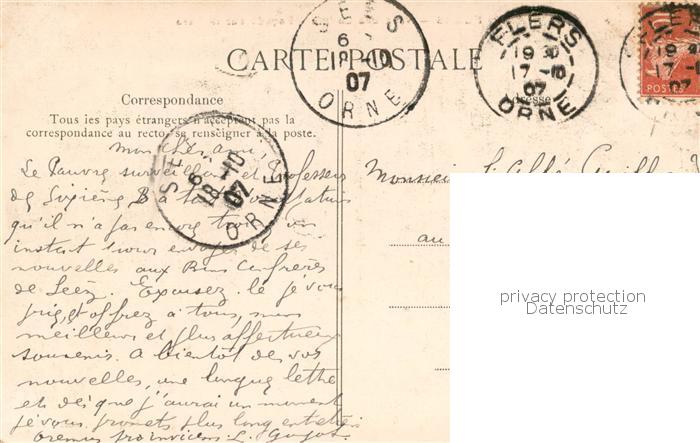 CARTE POSTALE
SEES
6
18-10
07
ORNE
FLERS
19
17-10
07
ORNE
19
17
07
POSTES
Correspondance
Adresse
Tous les pays étrangers n'acceptent pas la
correspondance au recto, se renseigner à la poste.
SEES
6
18-10
07
ORNE
mon cher ami,
Le Pauvre surveillant et Professeur
de Sixième B a tant
qu'il n'a pas encore trouvé un
instant pour envoyer de ses
nouvelles aux Bons Confrères
de Séez. Excusez-le je vous
prie, et offrez à tous, mes
meilleurs et plus affectueux
souvenirs. A bientôt de vos
nouvelles, une longue lettre
et dès que j'aurai un moment
je vous promets plus long entretien
Oremus pro invicem L. Guyot
Monsieur L'Abbé
au
privacy protection
Datenschutz